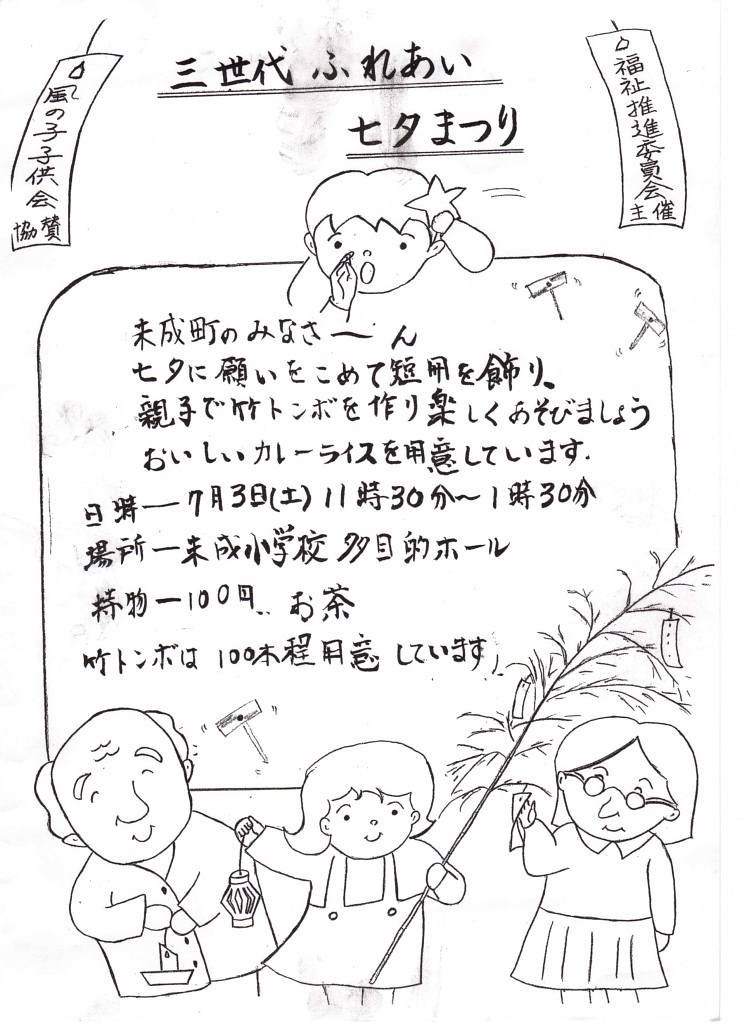 三世代ふれあい
七夕まつり
風の子子供会
協賛
福祉推進委員会
主催
末成町のみなさ〜ん
七夕に願いをこめて短冊を飾り、
親子で竹トンボを作り楽しくあそびましょう
おいしいカレーライスを用意しています.
日時ー7月3日(土)11時30分〜1時30分
場所ー末成小学校 多目的ホール
持物ー100円.. お茶
竹トンボは 100本程用意しています